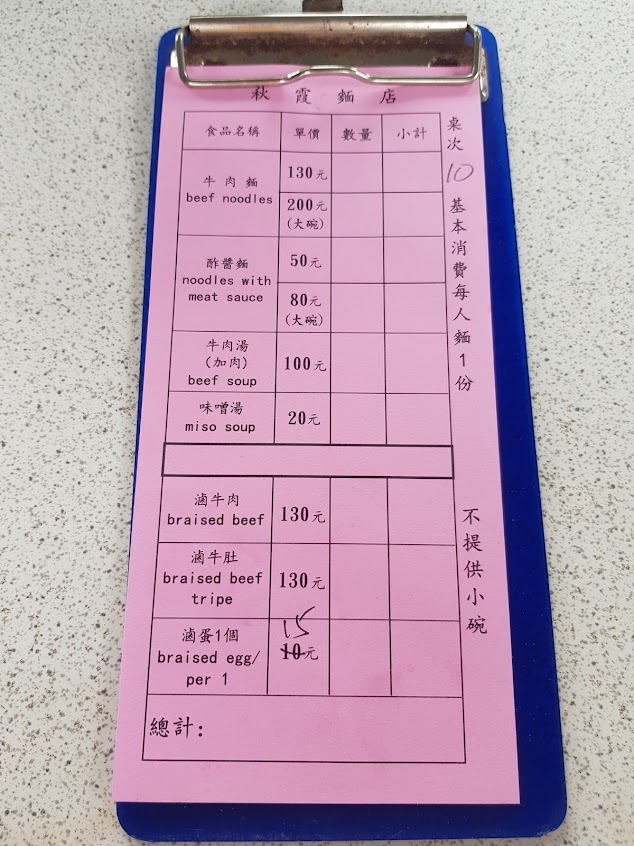 秋霞麵店
食品名稱 單價 數量 小計
牛肉麵
beef noodles
130元
200元
(大碗)
酢醬麵
noodles with
meat sauce
50元
80元
(大碗)
牛肉湯
(加肉)
beef soup
100元
味噌湯
miso soup
20元
滷牛肉
braised beef
130元
滷牛肚
braised beef
tripe
130元
滷蛋1個
braised egg/
per 1
15
10元
總計:
桌次
10
基本消費每人麵1份
不提供小碗